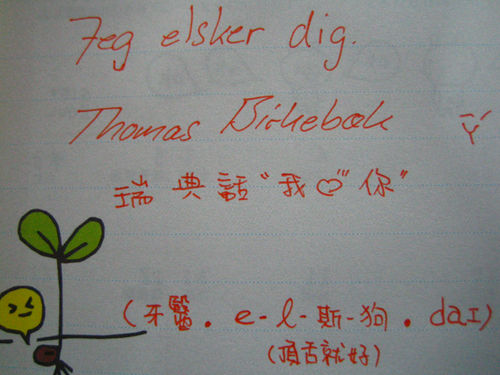 Jeg elsker dig.
Thomas Birkebæk
瑞典話"我♡你"
(牙醫．e-l-斯-狗．daI)
(頂舌就好)